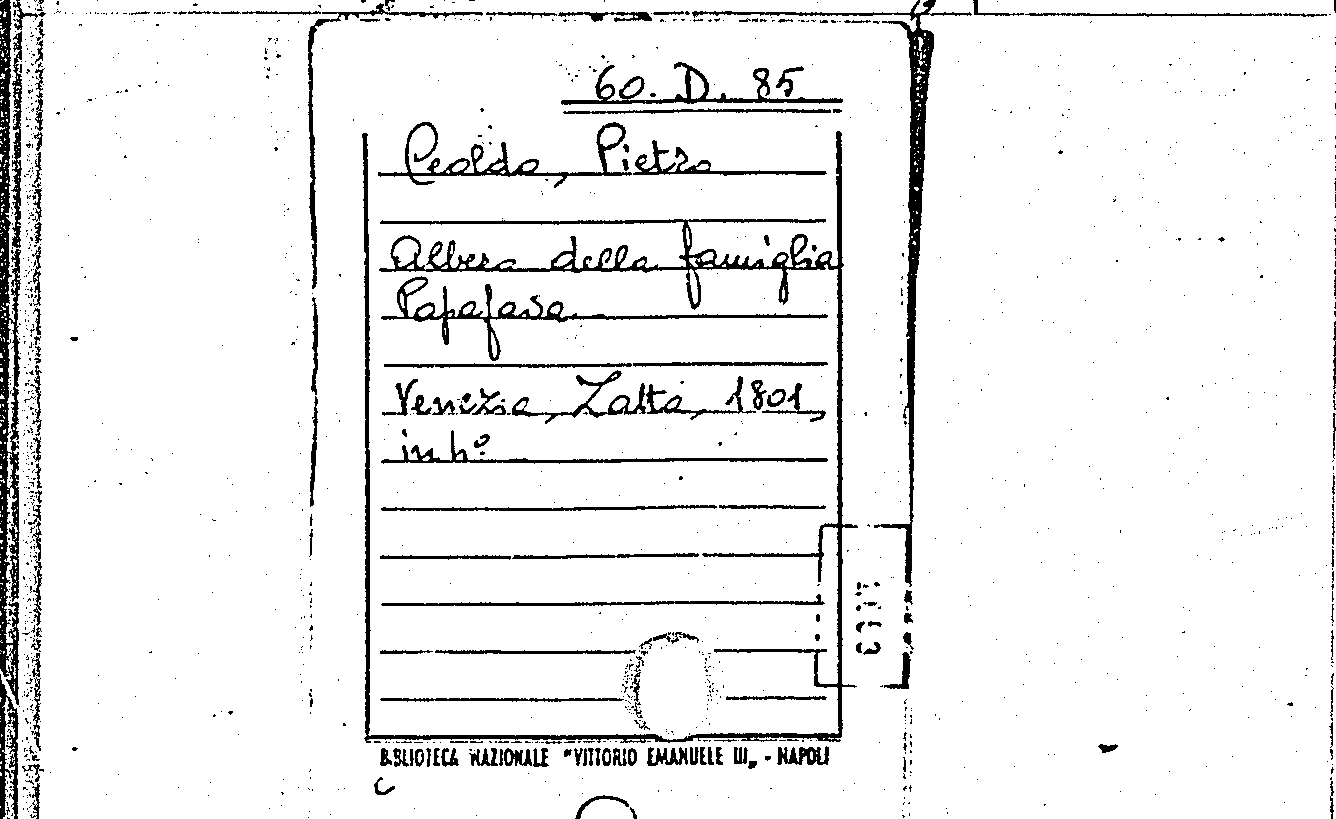 60. D. 85
Ceoldo, Pietro
Albero della famiglia
Papafava
Venezia, Zatta, 1801,
in 4º
BIBLIOTECA NAZIONALE "VITTORIO EMANUELE III„ - NAPOLI